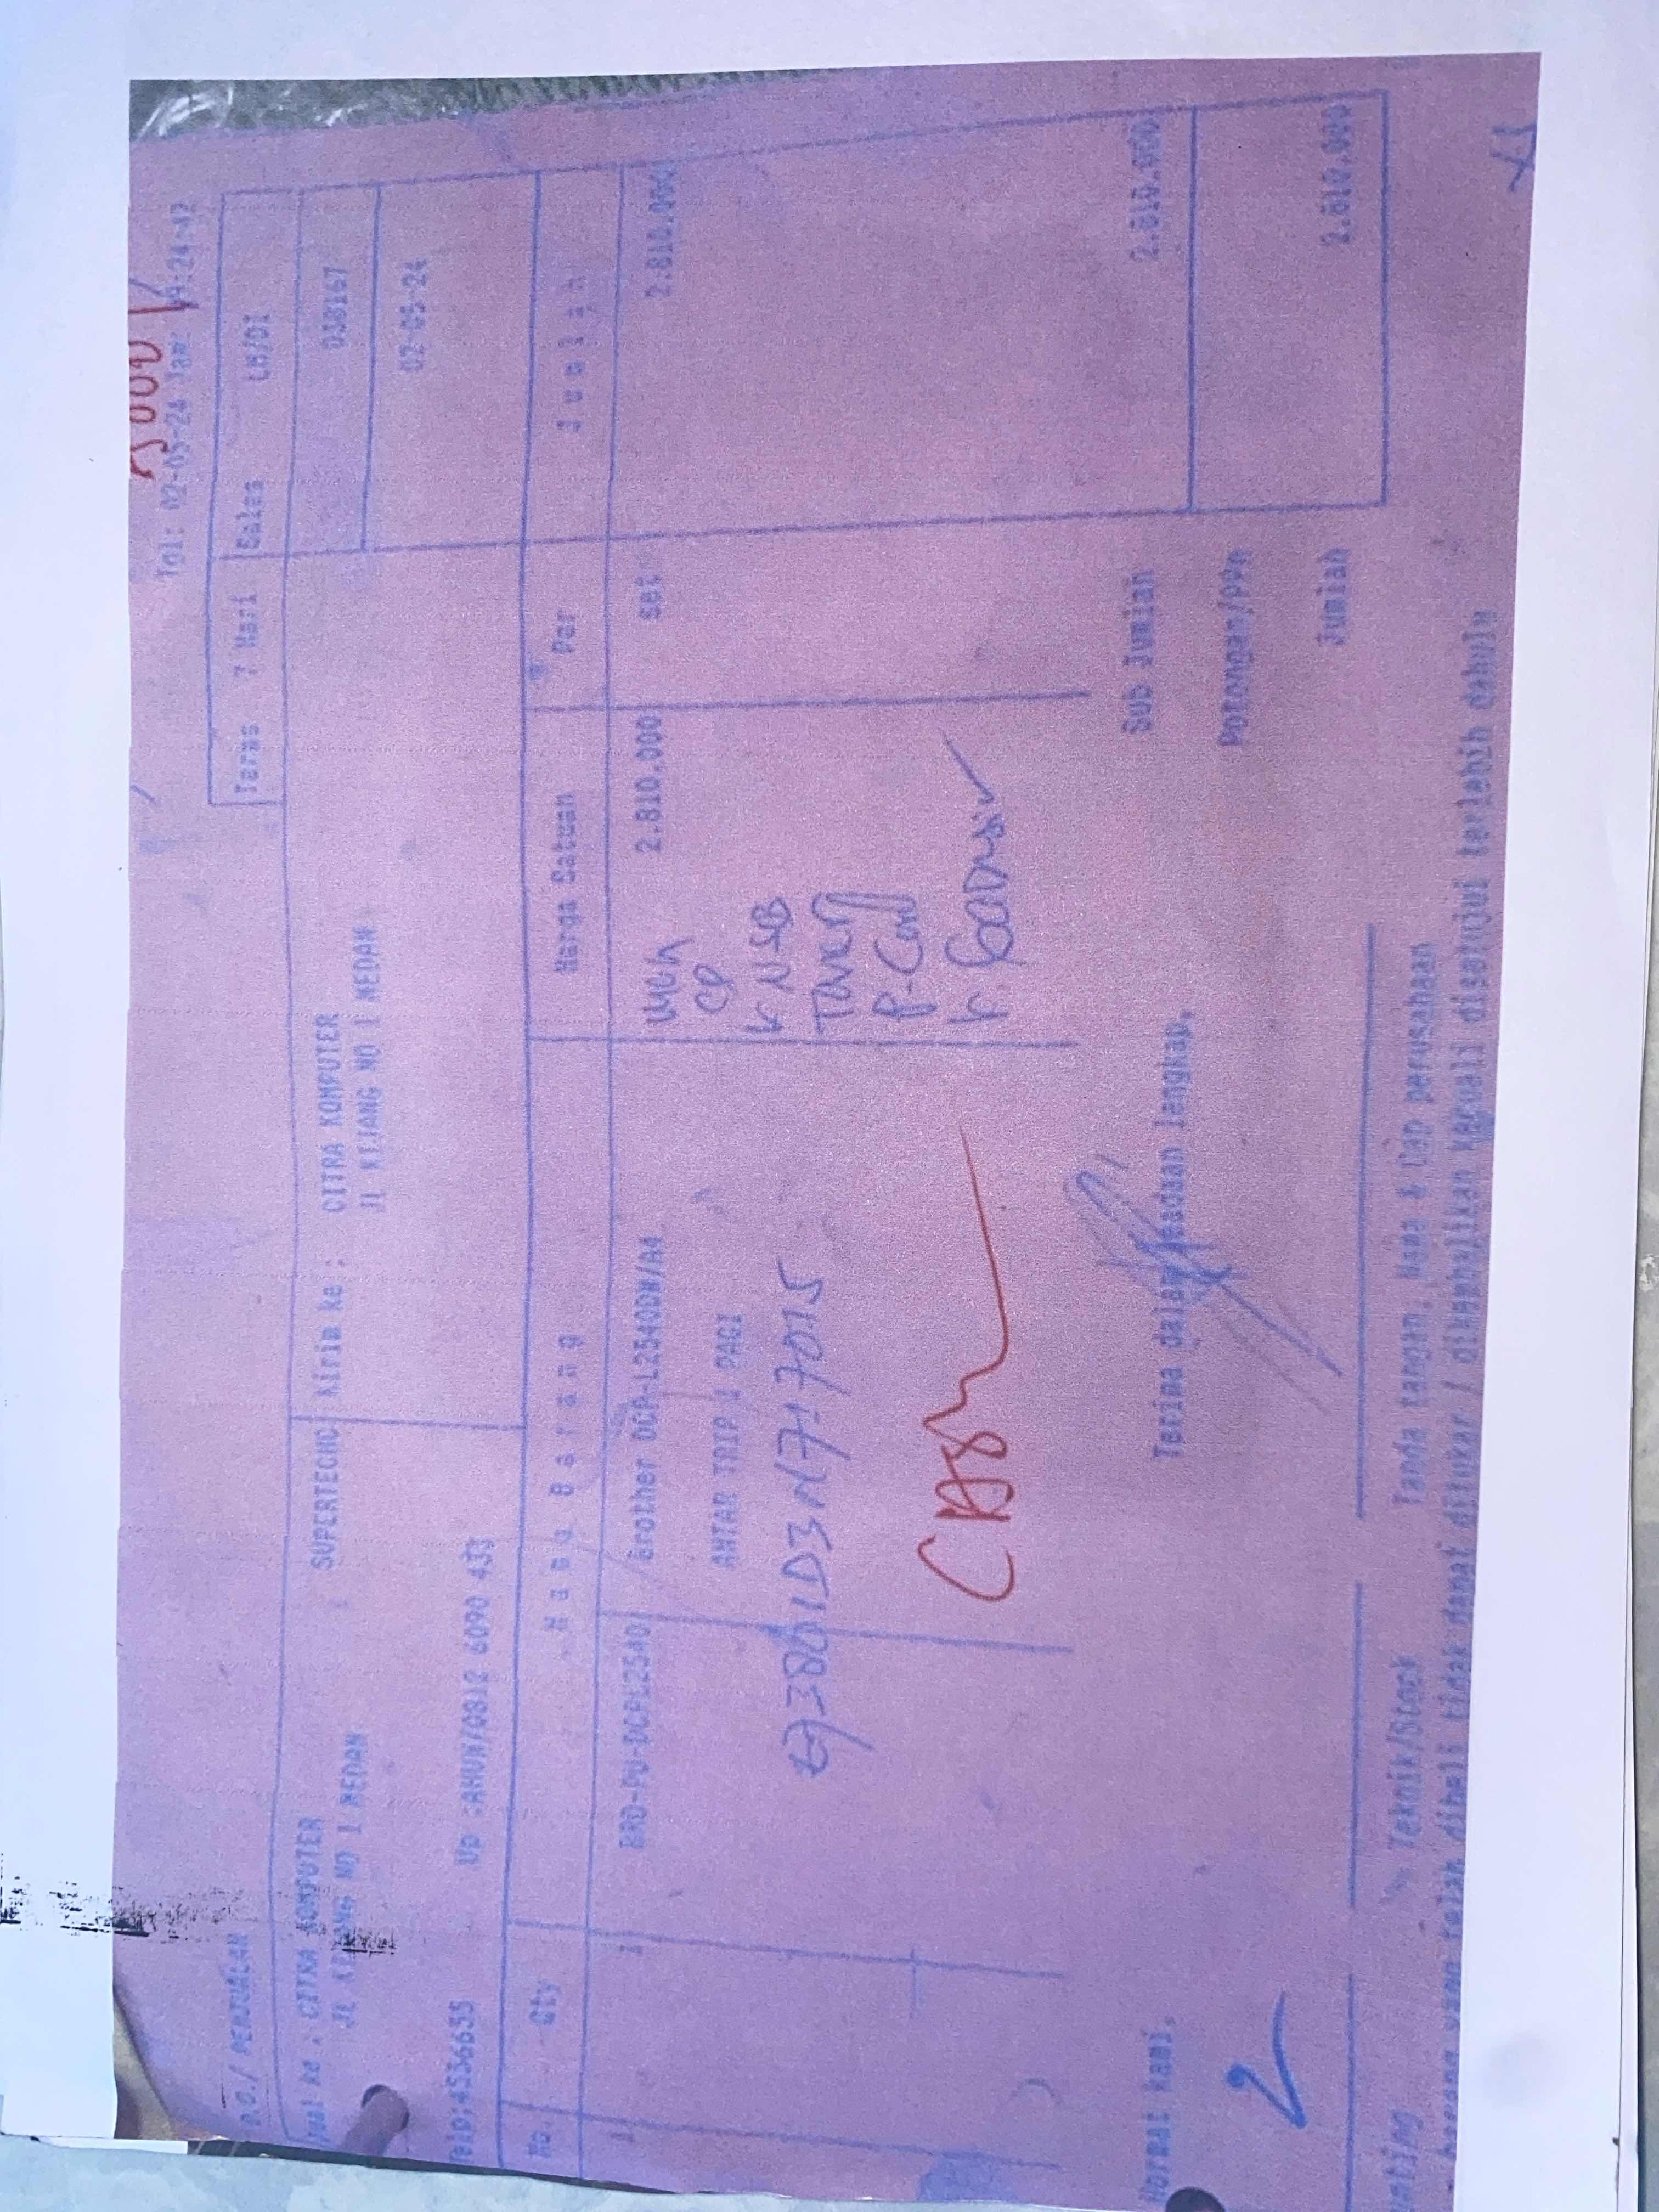 Tgl: 02-05-24 Jam:
D.O./ PENJUALAN
Terms 7 Hari Sales LM/DI
Jual ke : CITRA KOMPUTER
JL KIJANG NO 1 MEDAN
SUPERTECHC
Kirim ke : CITRA KOMPUTER
JL KIJANG NO 1 MEDAN
038167
02-05-24
Telp:4536655 Up :AHUN/0812 6090 433
No. Qty Nama Barang Harga Satuan Per Jumlah
1 1 BRO-PU-DCPL2540 Brother DCP-L2540DW/A4 2.810.000 set 2.810.000
ANTAR TRIP 1 PAGI
CP
P-Cord
CASH
Sub Jumlah 2.810.000
Potongan/PPn
Jumlah 2.810.000
Hormat kami,
Terima dalam keadaan lengkap,
Teknik/Stock
Tanda tangan, Nama & Cap perusahaan
barang yang telah dibeli tidak dapat ditukar / dikembalikan kecuali disetujui terlebih dahulu